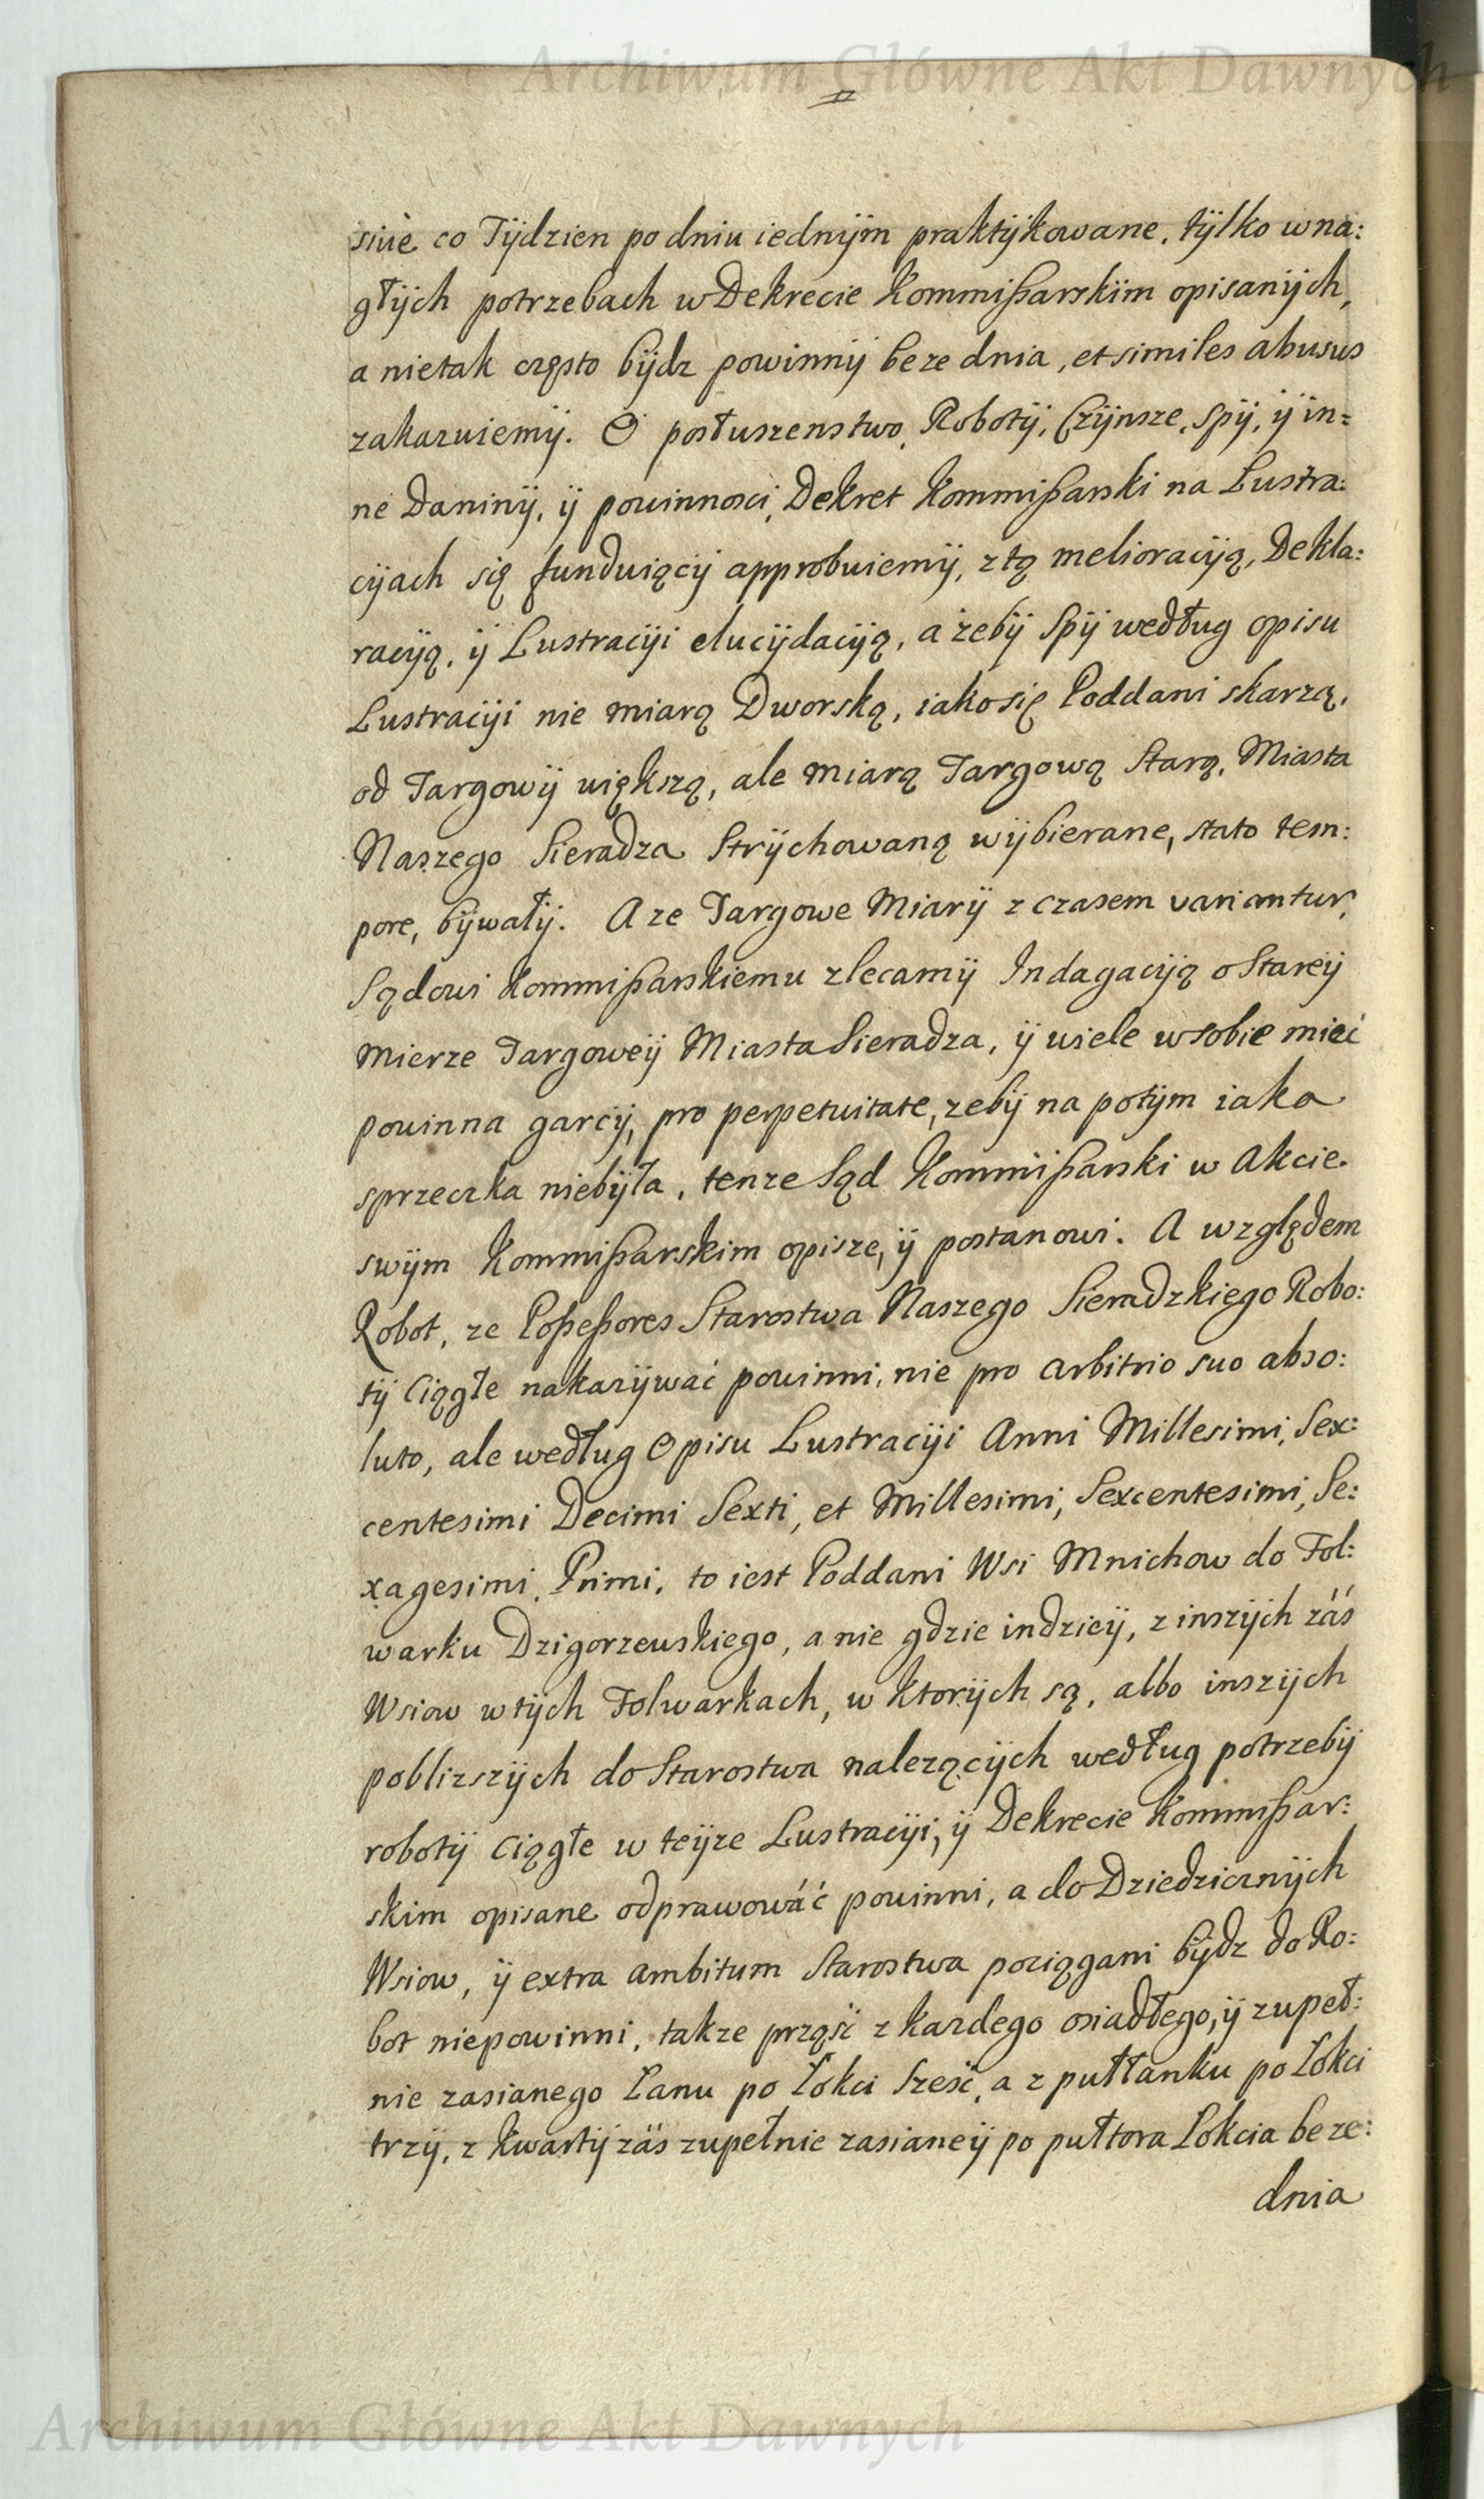 Archiwum Główne Akt Dawnych
siüè co Tÿdzien po dniu iednÿm praktÿkowane, tÿlko w na:
głÿch potrzebach w Dekrecie Kommißarskim opisanÿch,
a nietak często bÿdz powinnÿ beze dnia, et similes abusus
zakazuiemÿ. O posłuszenstwo, Robotÿ, Czÿnsze, Spÿ, ÿ in=
ne Daninÿ, ÿ powinnosci, Dekret Kommißarski na Lustra:
cÿach się funduiącÿ approbuiemÿ, z tą melioracÿą, Dekla:
racÿą, ÿ Lustracÿi elucÿdacÿą, a żebÿ Spÿ według opisu
Lustracÿi nie miarą Dworską, iako się Poddani skarzą,
od Targowÿ większą, ale miarą Targową Starą, Miasta
Naszego Sieradza Strÿchowaną wÿbierane, stato tem:
pore, bÿwałÿ. A ze Targowe Miarÿ z czasem variantur,
Sądowi Kommißarskiemu zlecamÿ Indagacÿą o Stareÿ
Mierze Targoweÿ Miasta Sieradza, ÿ wiele w sobie mieć
powinna garcÿ, pro perpetuitate, zebÿ na potÿm iaka
sprzeczka niebÿła, tenze Sąd Kommißarski w Akcie
swÿm Kommißarskim opisze, ÿ postanowi. A względem
Robot, ze Poßeßores Starostwa Naszego Sieradzkiego Robo:
tÿ Ciągłe nakazÿwać powinni, nie pro arbitrio suo abso:
luto, ale według Opisu Lustracÿi Anni Millesimi, Sex:
centesimi Decimi Sexti, et Millesimi, Sexcentesimi, Se:
xagesimi, Primi, to iest Poddani Wsi Mnichow do Fol:
warku Dzigorzewskiego, a nie gdzie indzieÿ, z inszÿch záś
Wsiow w tÿch Folwarkach, w ktorÿch są, albo inszÿch
poblizszÿch do Starostwa nalezącÿch według potrzebÿ
robotÿ ciągłe w teÿze Lustracÿi, ÿ Dekrecie Kommißar:
skim opisane odprawowáć powinni, a do Dziedzicznÿch
Wsiow, ÿ extra ambitum Starostwa pociągani bÿdz do Ro:
bot niepowinni, takze prząść z kazdego osiadłego, ÿ zupeł:
nie zasianego Łanu po Łokci Sześć, a z pułłanku po Łokci
trzÿ, z kwartÿ záś zupełnie zasianeÿ po pułtora Łokcia beze:
dnia
Archiwum Główne Akt Dawnych